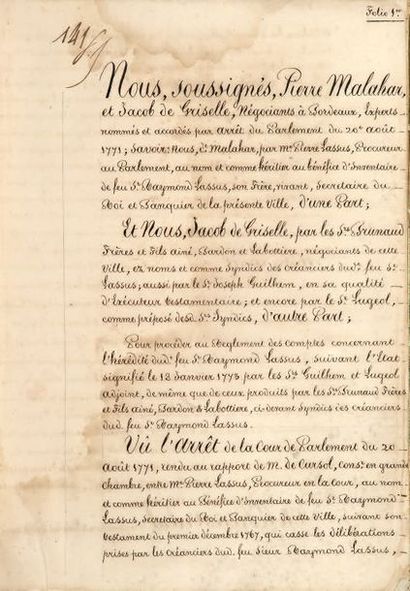 Folio 1er
141
Nous, soussignés, Pierre Malahar,
et Jacob de Griselle, Négociants à Bordeaux, Experts
nommés et accordés par arrêt du Parlement du 20e août
1771; Savoir: Nous, d. Malahar, par Me Pierre Lassus, Procureur
au Parlement, au nom et comme héritier au bénéfice d'Inventaire
de feu Sr Raymond Lassus, son Frère, vivant, Secretaire du
Roi et Banquier de la présente Ville, d'une Part;
Et Nous, Jacob de Griselle, par les Srs Brunaud
Frères et Fils ainé, Bardon et Labottiere, négociants de cette
Ville, ez noms et comme Syndics des créanciers dud. feu Sr
Lassus; aussi par le Sr Joseph Guilhem, en sa qualité
d'Exécuteur testamentaire; et encore par le Sr Lugeol,
comme préposé desd. Srs Syndics, d'autre Part;
Pour procéder au Reglement des comptes concernant
l'hérédité dud. feu Sr Raymond Lassus, suivant l'Etat
signifié le 12 Janvier 1773 par les Srs Guilhem et Lugeol
adjoint, de même que ceux produits par les Srs Brunaud Frères
et Fils ainé, Bardon & Labottiere, ci-devant Syndics des créanciers
dud. feu Sr Raymond Lassus.
Vû l'arrêt de la Cour de Parlement du 20
août 1771, rendu au rapport de M. de Cursol, consr. en grande
chambre, entre Me Pierre Lassus, Procureur en la cour, au nom
et comme héritier au Bénéfice d'Inventaire de feu Sr Raymond
Lassus, secretaire du Roi et Banquier de cette Ville, suivant son
testament du premier décembre 1767, qui casse les délibérations
prises par les créanciers dud. feu Sieur Raymond Lassus,